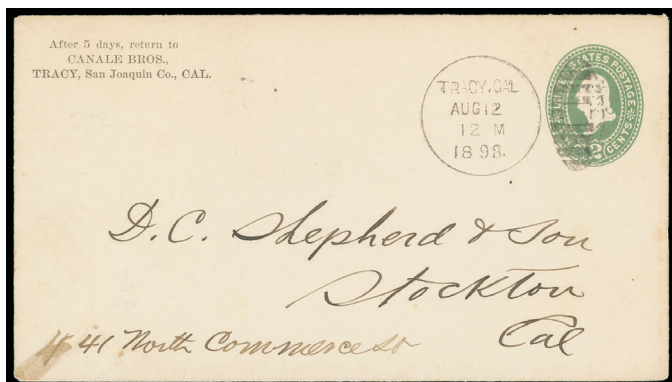 After 5 days, return to
CANALE BROS.,
TRACY, San Joaquin Co., CAL.
TRACY, CAL
AUG 12
12 M
1893.
UNITED STATES POSTAGE
2 CENTS
D. C. Shepherd & Son
Stockton
Cal
441 North Commerce St